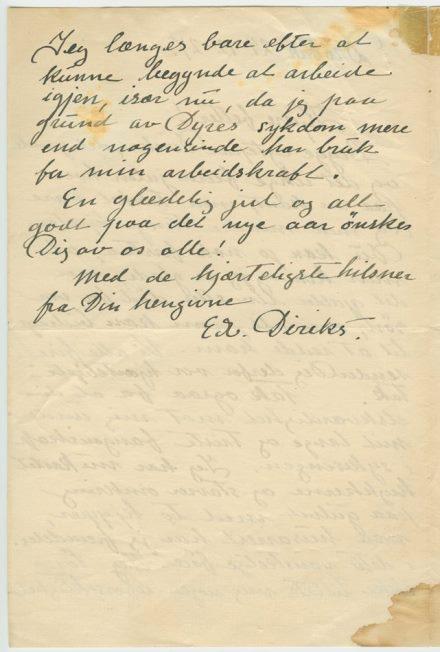 Jeg længes bare efter at
kunne begynde at arbeide
igjen, især nu, da jeg paa
grund av Dyres sykdom mere
end nogensinde har bruk
for min arbeidskraft.
En glædelig jul og alt
godt paa det nye aar ønskes
Dig av os alle!
Med de hjærteligste hilsner
fra Din hengivne
Diriks.